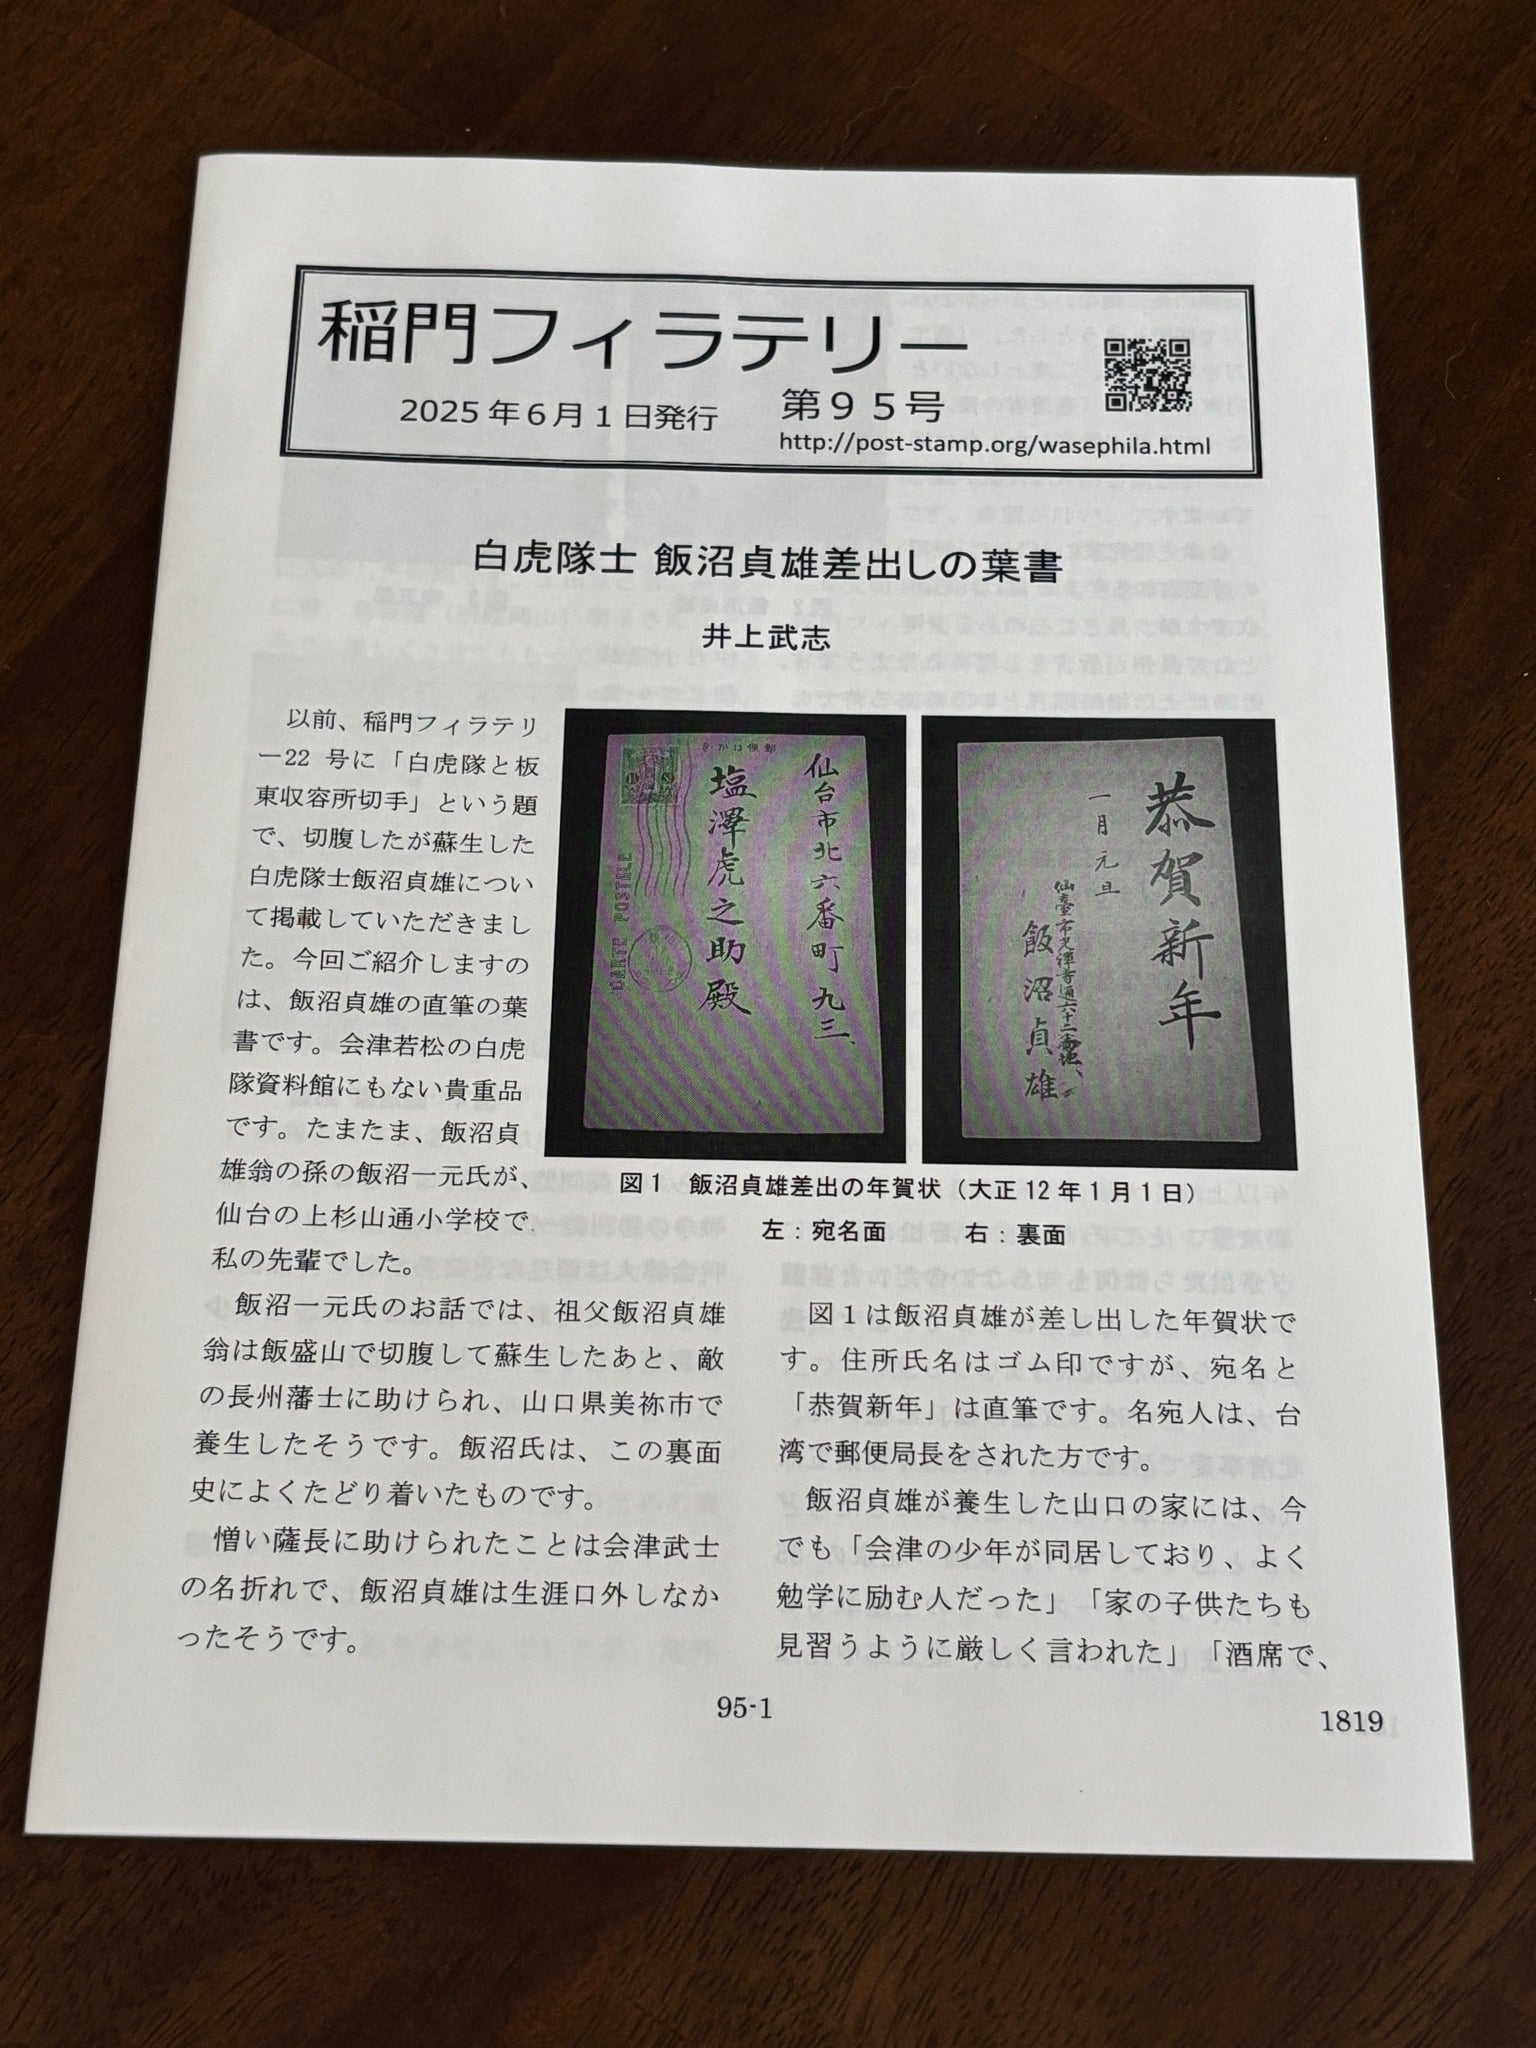 稲門フィラテリー
2025年6月1日発行
第95号
http://post-stamp.org/wasephila.html
白虎隊士 飯沼貞雄差出しの葉書
井上武志
以前、稲門フィラテリ
ー22 号に「白虎隊と板
東収容所切手」という題
で、切腹したが蘇生した
白虎隊士飯沼貞雄につい
て掲載していただきまし
た。今回ご紹介しますの
は、飯沼貞雄の直筆の葉
書です。会津若松の白虎
隊資料館にもない貴重品
です。たまたま、飯沼貞
雄翁の孫の飯沼一元氏が、
仙台の上杉山通小学校で、
私の先輩でした。
飯沼一元氏のお話では、祖父飯沼貞雄
翁は飯盛山で切腹して蘇生したあと、敵
の長州藩士に助けられ、山口県美祢市で
養生したそうです。飯沼氏は、この裏面
史によくたどり着いたものです。
憎い薩長に助けられたことは会津武士
の名折れで、飯沼貞雄は生涯口外しなか
ったそうです。
郵便はがき
仙台市北六番町九三、
塩澤虎之助殿
CARTE POSTALE
恭賀新年
一月元旦
仙臺市光禅寺通六十二番地、
飯沼貞雄
図1 飯沼貞雄差出の年賀状（大正12年1月1日）
左：宛名面 右：裏面
図1は飯沼貞雄が差し出した年賀状で
す。住所氏名はゴム印ですが、宛名と
「恭賀新年」は直筆です。名宛人は、台
湾で郵便局長をされた方です。
飯沼貞雄が養生した山口の家には、今
でも「会津の少年が同居しており、よく
勉学に励む人だった」「家の子供たちも
見習うように厳しく言われた」「酒席で、
95-1
1819